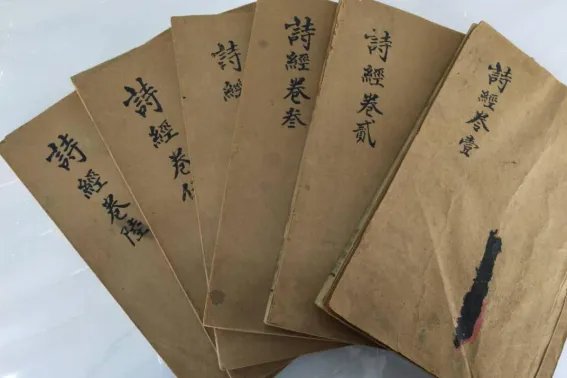 詩經卷壹
詩經卷貳
詩經卷叁
詩經
詩經卷
詩經卷陸